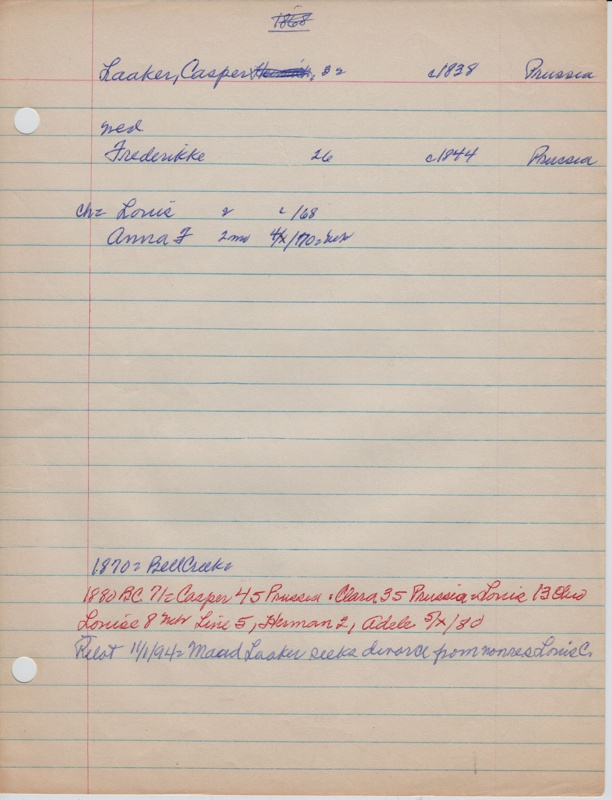 1868
Laaker, Casper, 32 c1838 Prussia
med
Frederikke 26 c1844 Prussia
ch= Louis 2 c/68
Anna F 2mo 4/x/1870=Neb
1870= Bell Creek=
1880 BC 71= Casper 45 Prussia = Clara 35 Prussia = Louis 13 Ohio
Louise 8 Neb Line 5, Herman 2, Adele 5/x/80
Pilot 11/1/94= Maud Laaker seeks divorce from nonres Louis C.